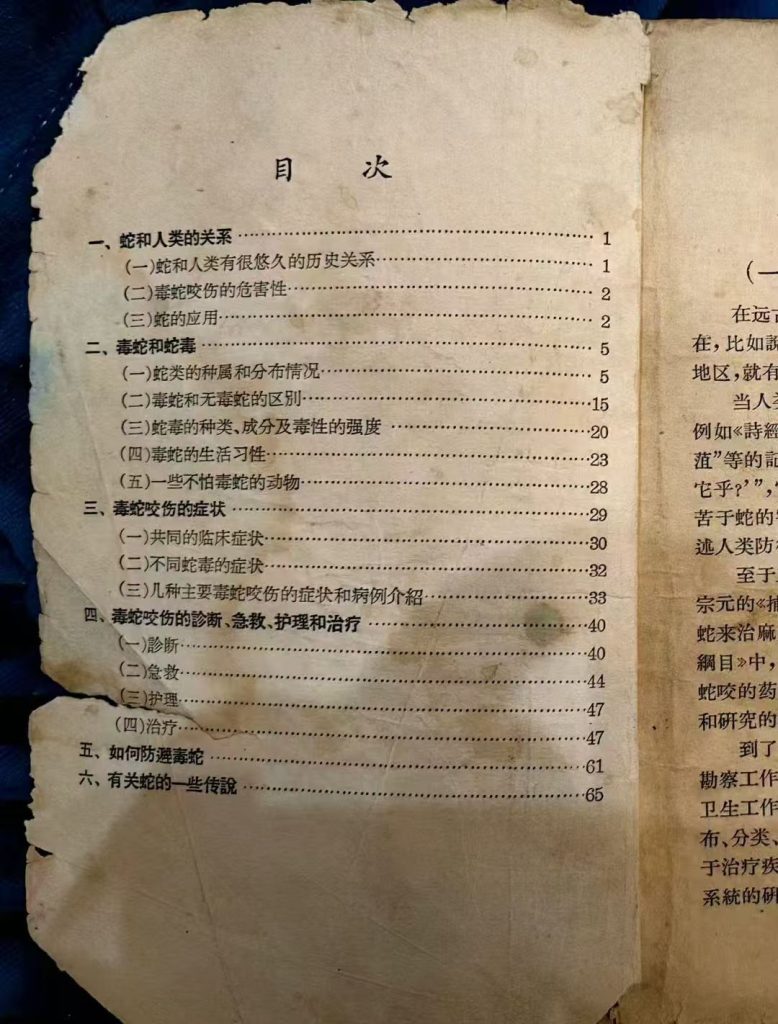 目 次
一、蛇和人类的关系……1
(一)蛇和人类有很悠久的历史关系……1
(二)毒蛇咬伤的危害性……2
(三)蛇的应用……2
二、毒蛇和蛇毒……5
(一)蛇类的种属和分布情况……5
(二)毒蛇和无毒蛇的区别……15
(三)蛇毒的种类、成分及毒性的强度……20
(四)毒蛇的生活习性……23
(五)一些不怕毒蛇的动物……28
三、毒蛇咬伤的症状……29
(一)共同的临床症状……30
(二)不同蛇毒的症状……32
(三)几种主要毒蛇咬伤的症状和病例介紹……33
四、毒蛇咬伤的診断、急救、护理和治疗……40
(一)診断……40
(二)急救……44
(三)护理……47
(四)治疗……47
五、如何防避毒蛇……61
六、有关蛇的一些传說……65
(一
在远古
在,比如說
地区,就有
当人类
例如《詩經
范”等的記
它乎?’”,
苦于蛇的
述人类防
至于
宗元的《捕
蛇来治麻
綱目》中,
蛇咬的药
和研究的
到了
勘察工作
卫生工作
布、分类、
于治疗疾
系統的研